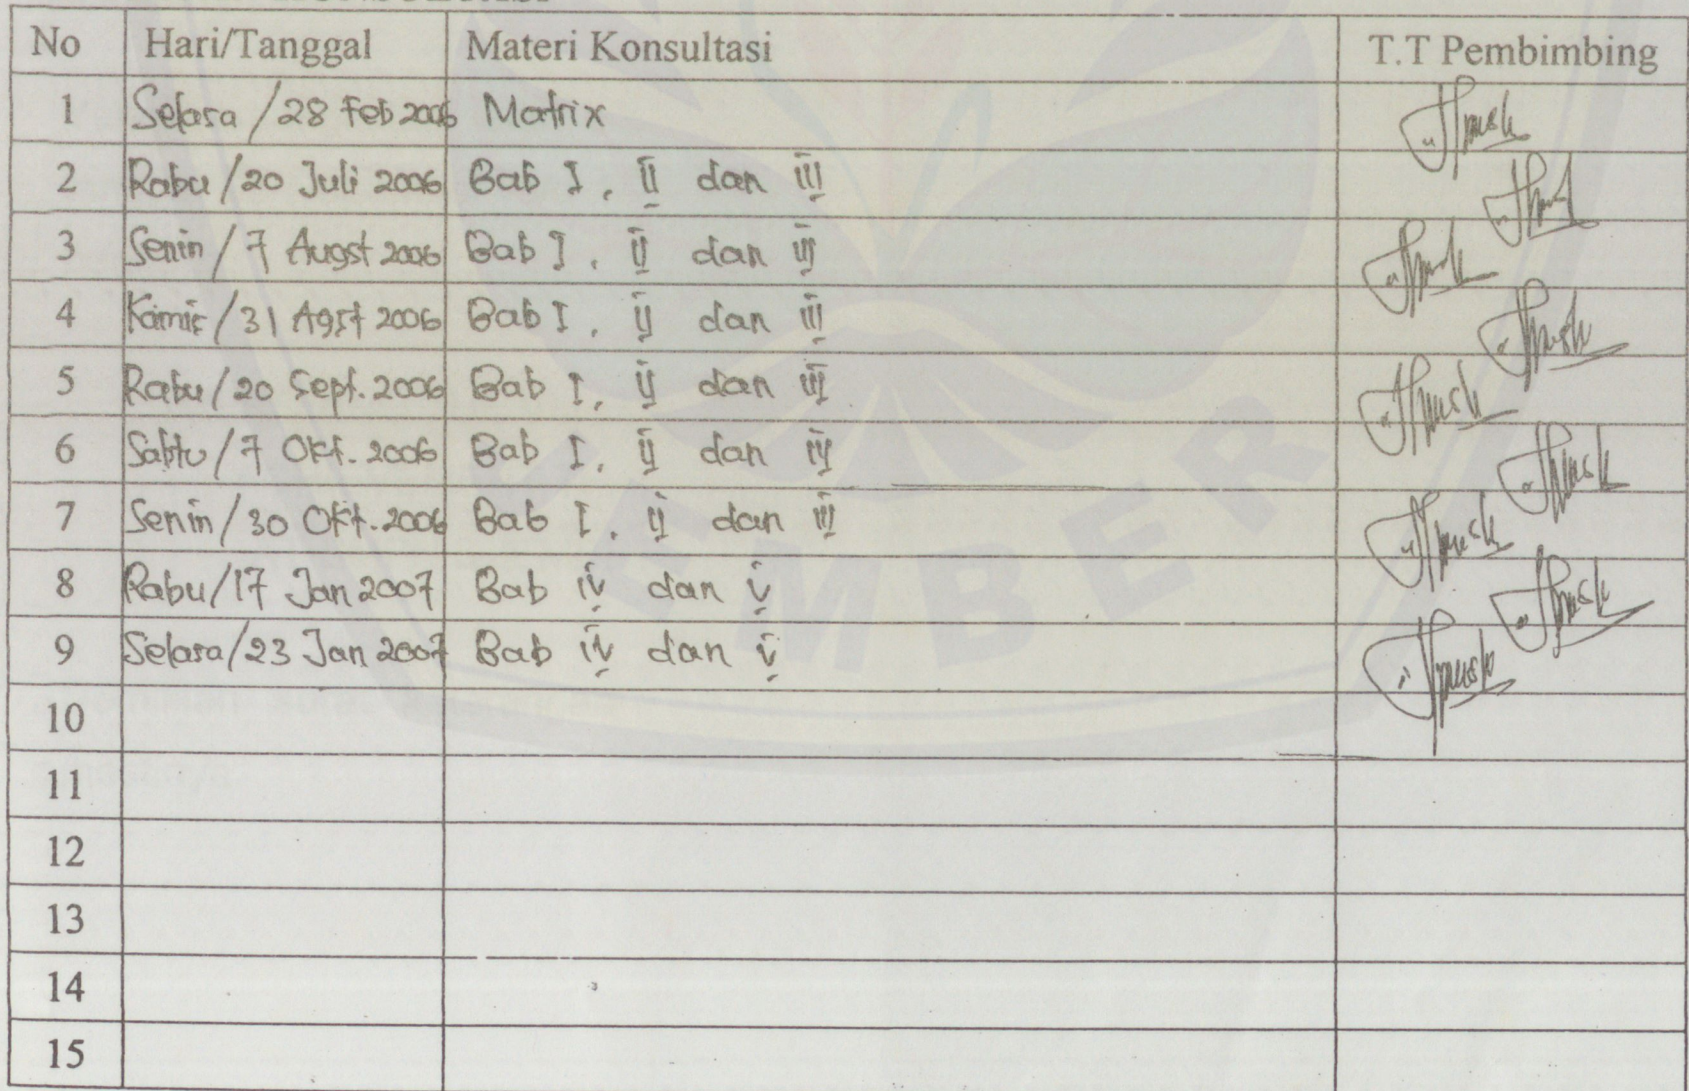 No Hari/Tanggal Materi Konsultasi T.T Pembimbing
1 Selasa / 28 Feb 2006 Matrix
2 Rabu / 20 Juli 2006 Bab I, II dan III
3 Senin / 7 Augst 2006 Bab I, II dan III
4 Kamis / 31 Agst 2006 Bab I, II dan III
5 Rabu / 20 Sept. 2006 Bab I, II dan III
6 Sabtu / 7 Okt. 2006 Bab I, II dan III
7 Senin / 30 Okt. 2006 Bab I, II dan III
8 Rabu / 17 Jan 2007 Bab IV dan V
9 Selasa / 23 Jan 2007 Bab IV dan V
10
11
12
13
14
15
EMBER